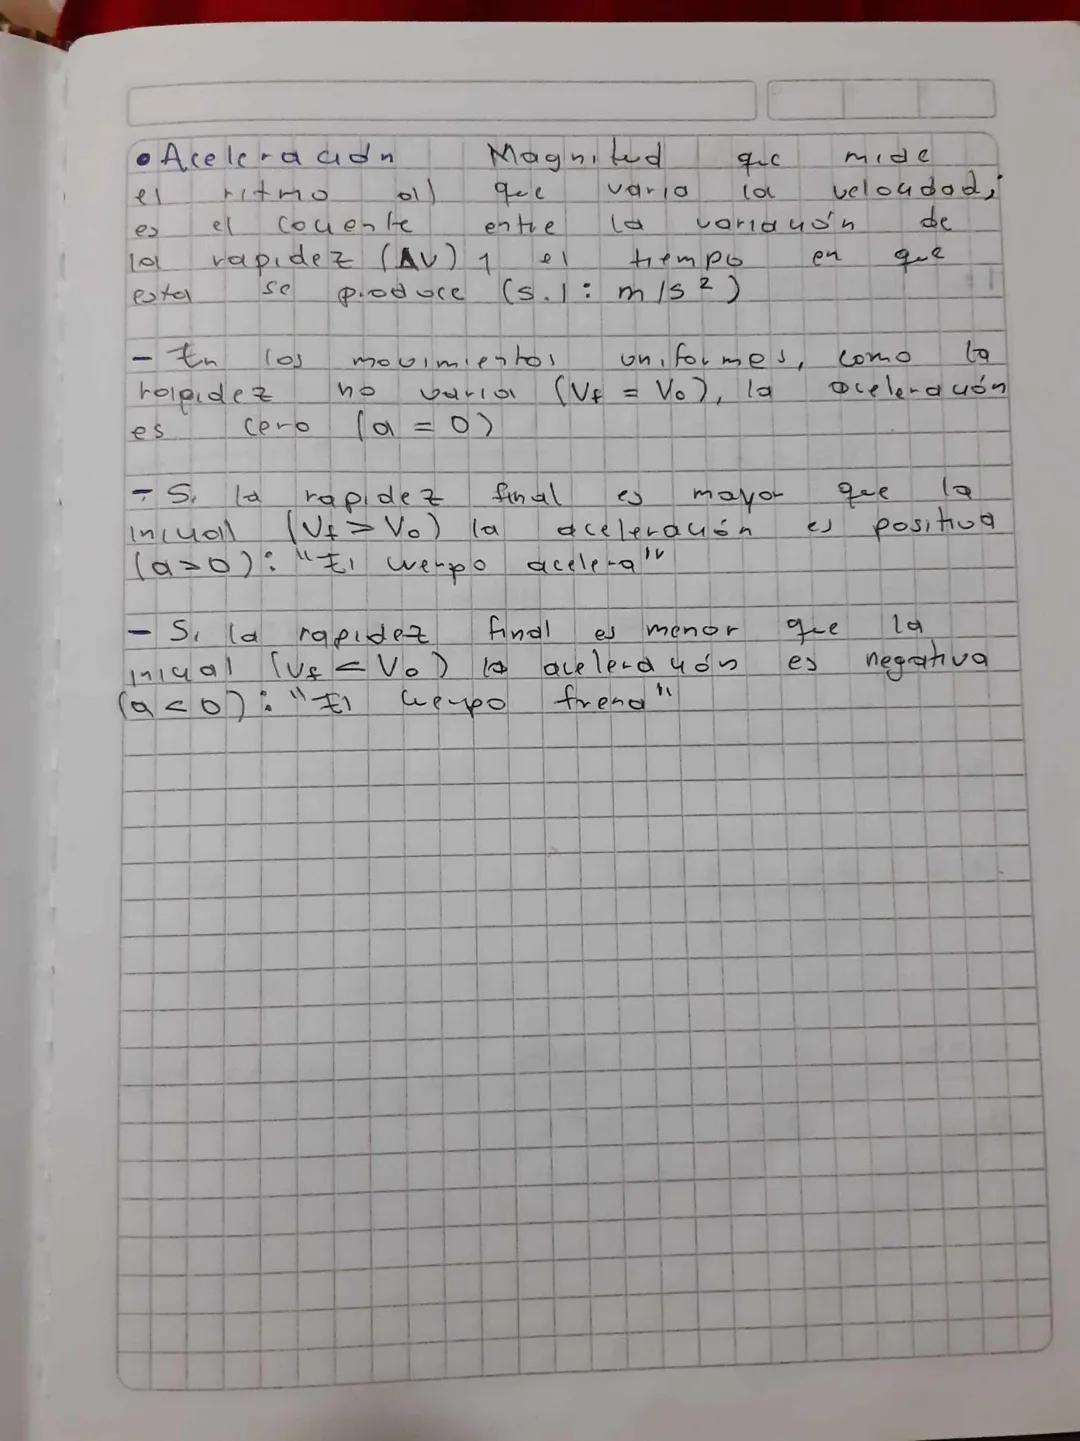 • Aceleración Magnitud que mide
el ritmo al que varia la velocidad;
es el cociente entre la variación de
la rapidez (ΔV) y el tiempo en que
esta se produce (S.I: m/s²)
- En los movimientos uniformes, como la
rapidez no varia (Vf = Vo), la aceleración
es cero (a = 0)
- Si la rapidez final es mayor que la
inicial (Vf > Vo) la aceleración es positiva
(a>0): "El cuerpo acelera"
- Si la rapidez final es menor que la
inicial (Vf < Vo) la aceleración es negativa
(a<0): "El cuerpo frena"